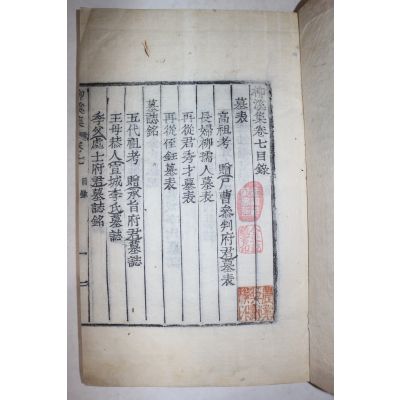 柳溪集卷七目錄
墓表
高祖考 贈戶曹參判府君墓表
長婦柳孺人墓表
再從君秀才墓表
再從侄鈺墓表
墓誌銘
五代祖考 贈承旨府君墓誌
王母恭人宣城李氏墓誌
季父處士府君墓誌銘
卷七 目錄 一